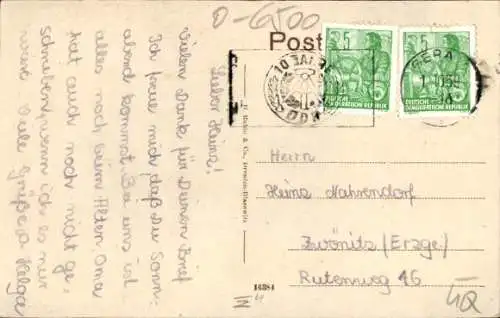 O-6500
Post
Lieber Heinz!
Vielen Dank für Deinen Brief
Ich freue mich daß Du Sonn-
abend kommst. Bei uns ist
alles noch beim Alten. Oma
hat auch noch nicht ge-
schrieben, wenn ich es nur
wüßte. Viele Grüße Helga
10 JAHRE
DDR
GERA
5
DEUTSCHE
DEMOKRATISCHE REPUBLIK
5
DEUTSCHE
DEMOKRATISCHE REPUBLIK
Herrn
Heinz Nahrendorf
Zwönitz (Erzge.)
Rutenweg 46
14384